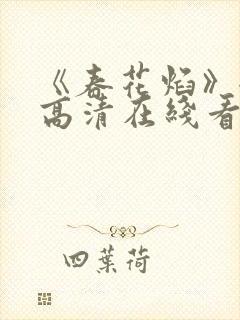 《春花焰》
高清在线看
四葉荷